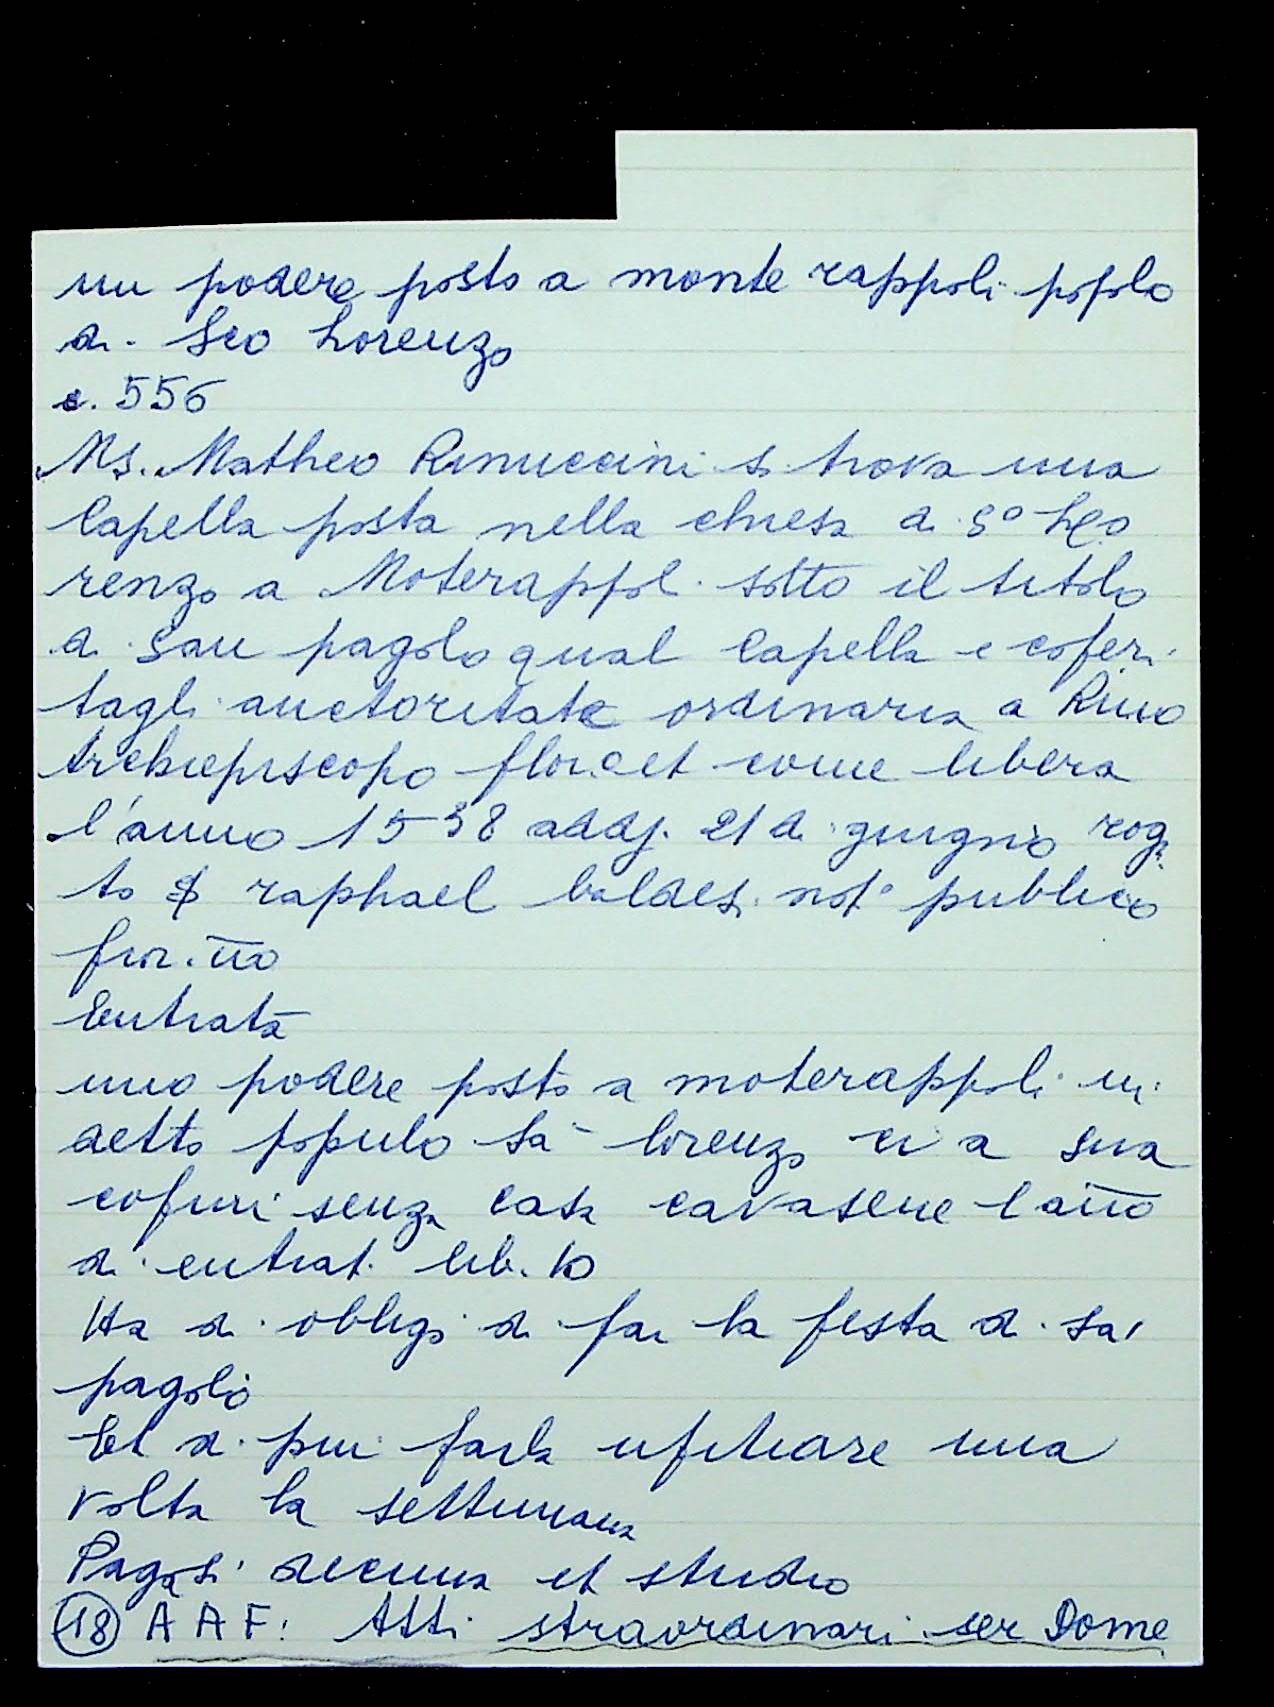 un podere posto a monte rappoli popolo
di Sco Lorenzo
c. 556
Ms. Matheo Rinuccini si trova una
Capella posta nella chiesa di So Lo
renzo a Moterappoli sotto il titolo
di San pagolo qual Capella e coferi
tagli auctoritate ordinaria a Rmo
Archiepiscopo floret come libera
l'anno 1538 addj. 21 di giugno rog
to raphael baldesi noto publico
fior.no
Entrata
uno podere posto a moterappoli in
detto populo sā lorenzo ci a sua
cofini senza casa cavasene l'āno
di entrat. lib. 10
Ha di obligo di far la festa di sā
pagolo
Et di piu farla ufitiare una
volta la settimana
Pagasi decima et studio
(18) A A F: Atti straordinari ser Dome